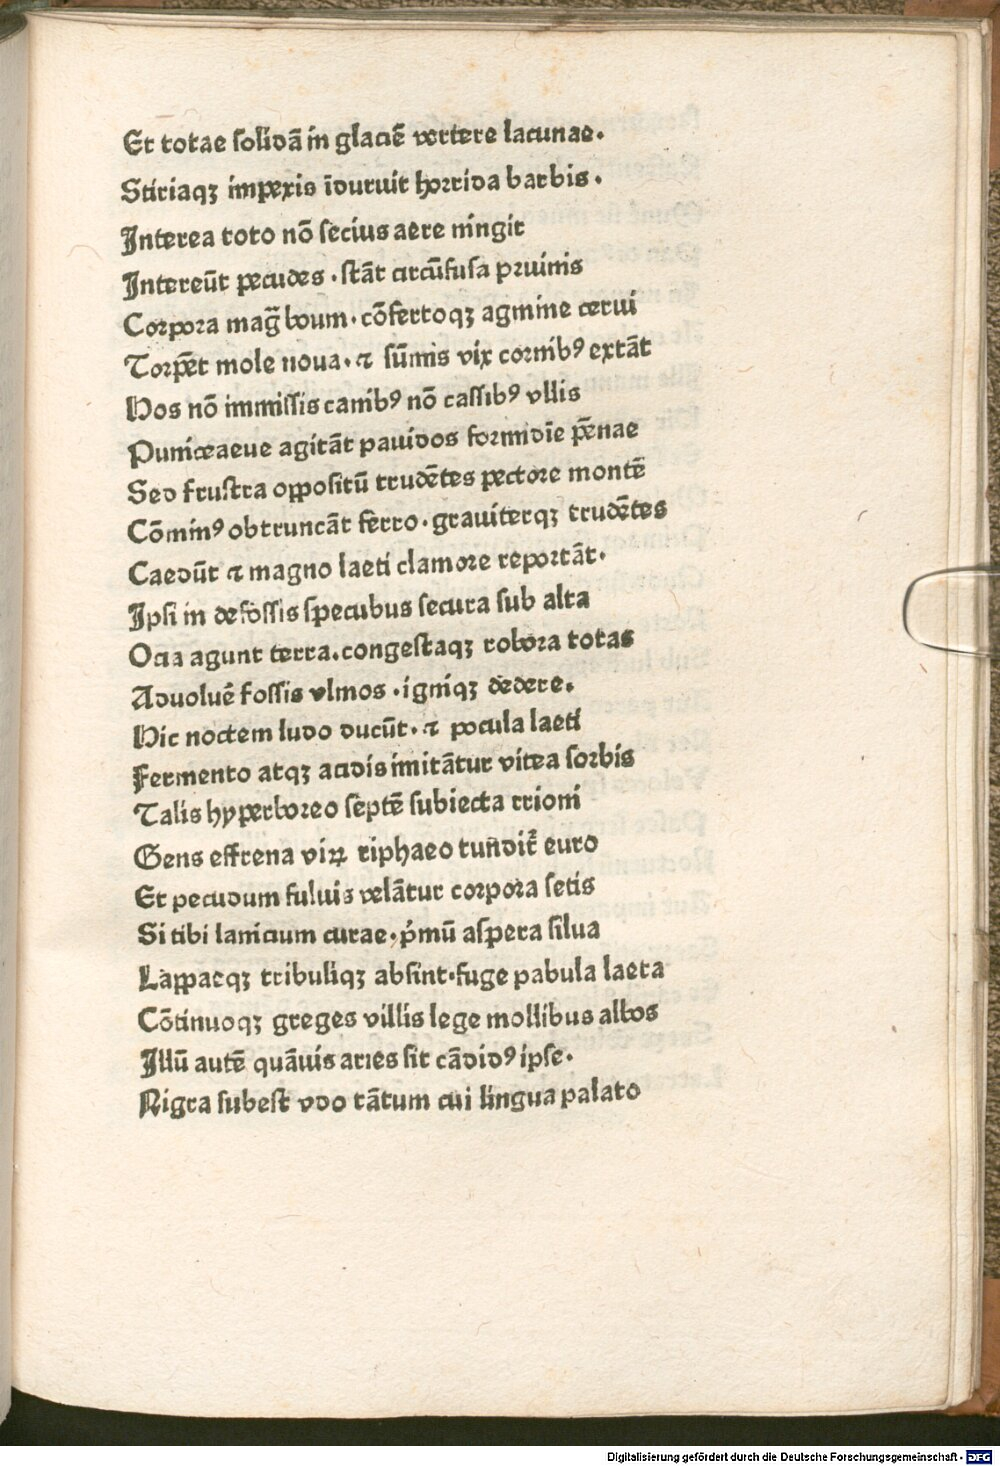 Et totae solidā in glaciē vertere lacunae.
Stiriaqꝫ impexis īduruit horrida barbis.
Interea toto nō secius aere ningit
Intereūt pecudes. stāt circūfusa pruinis
Corpora mag̃ boum. cōfertoqꝫ agmine cerui
Torpēt mole noua. ⁊ sūmis vix cornibꝰ extāt
Hos nō immissis canibꝰ nō cassibꝰ vllis
Puniceaeue agitāt pauidos formidīe pēnae
Sed frustra oppositū trudētes pectore montē
Cōminꝰ obtruncāt ferro. grauiterqꝫ trudētes
Caedūt ⁊ magno laeti clamore reportāt.
Ipsi in defossis specubus secura sub alta
Ocia agunt terra. congestaqꝫ robora totas
Aduoluē fossis vlmos. igniqꝫ dedere.
Hic noctem ludo ducūt. ⁊ pocula laeti
Fermento atqꝫ acidis imitātur vitea sorbis
Talis hyperboreo septē subiecta trioni
Gens effrena viꝝ riphaeo tundit᷑ euro
Et pecudum fuluis velātur corpora setis
Si tibi lanicium curae. p̍mū aspera silua
Lappaeqꝫ tribuliqꝫ absint. fuge pabula laeta
Cōtinuoqꝫ greges villis lege mollibus albos
Illū autē quāuis aries sit cādidꝰ ipse.
Nigra subest vdo tātum cui lingua palato
Digitalisierung gefördert durch die Deutsche Forschungsgemeinschaft - DFG